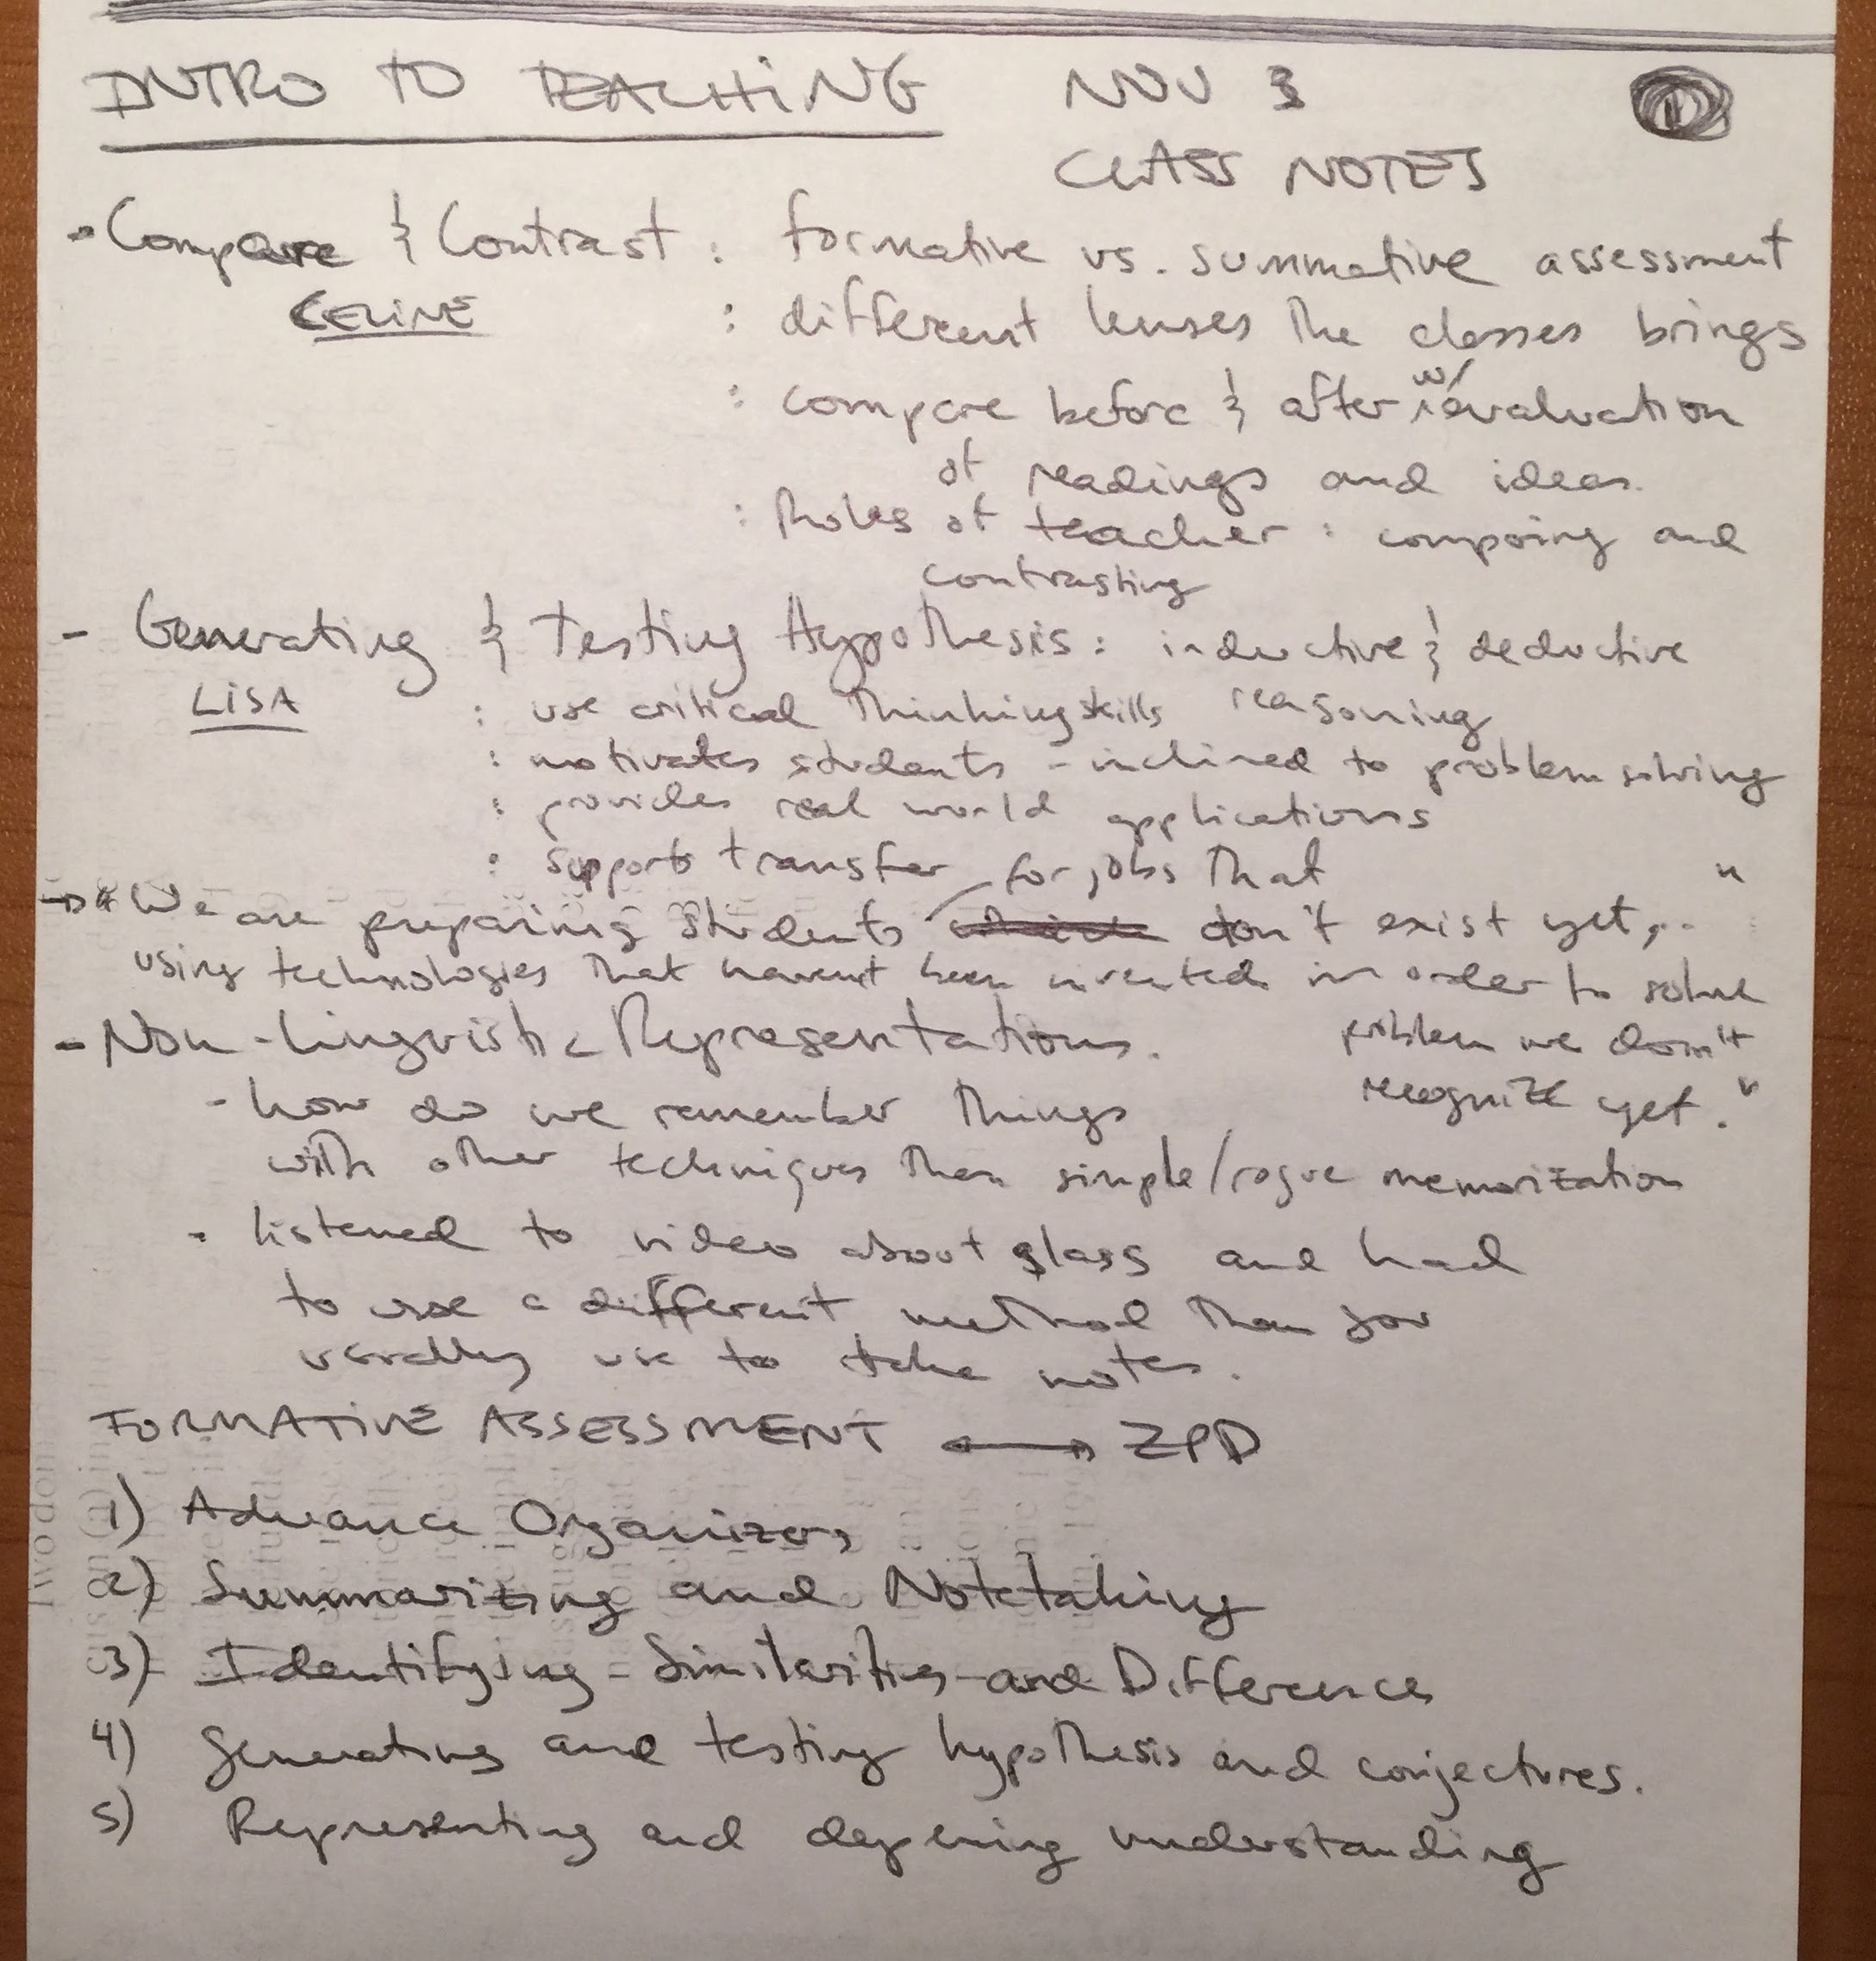 INTRO TO TEACHING NOV 3
CLASS NOTES
- Compare & Contrast : formative vs. summative assessment
CELINE : different lenses the classes brings
: compare before & after w/ evaluation
of readings and ideas.
: Roles of teacher : comparing and
contrasting
- Generating & Testing Hypothesis : inductive & deductive
LISA : use critical thinking skills reasoning
: motivates students - inclined to problem solving
: provides real world applications
: supports transfer for jobs that "
→ "We are preparing students don't exist yet,..
using technologies that havent been invented in order to solve
- Non-linguistic Representations. problem we don't
- how do we remember things recognize yet."
with other techniques than simple/rogue memorization
- listened to video about glass and had
to use a different method than you
usually use to take notes.
FORMATIVE ASSESSMENT ↔ ZPD
1) Advance Organizers
2) Summarizing and Notetaking
3) Identifying - Similarities - and Differences
4) Generating and testing hypothesis and conjectures.
5) Representing and depening understanding